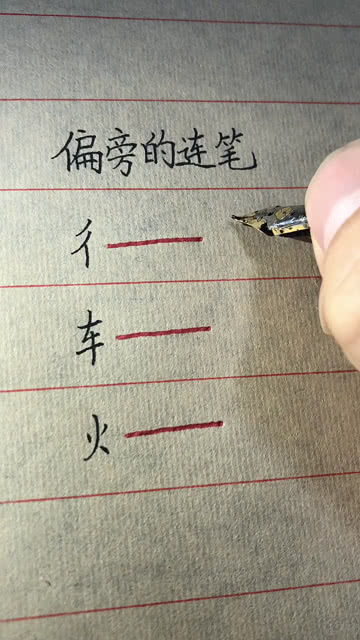 偏旁的连笔
彳
车
火